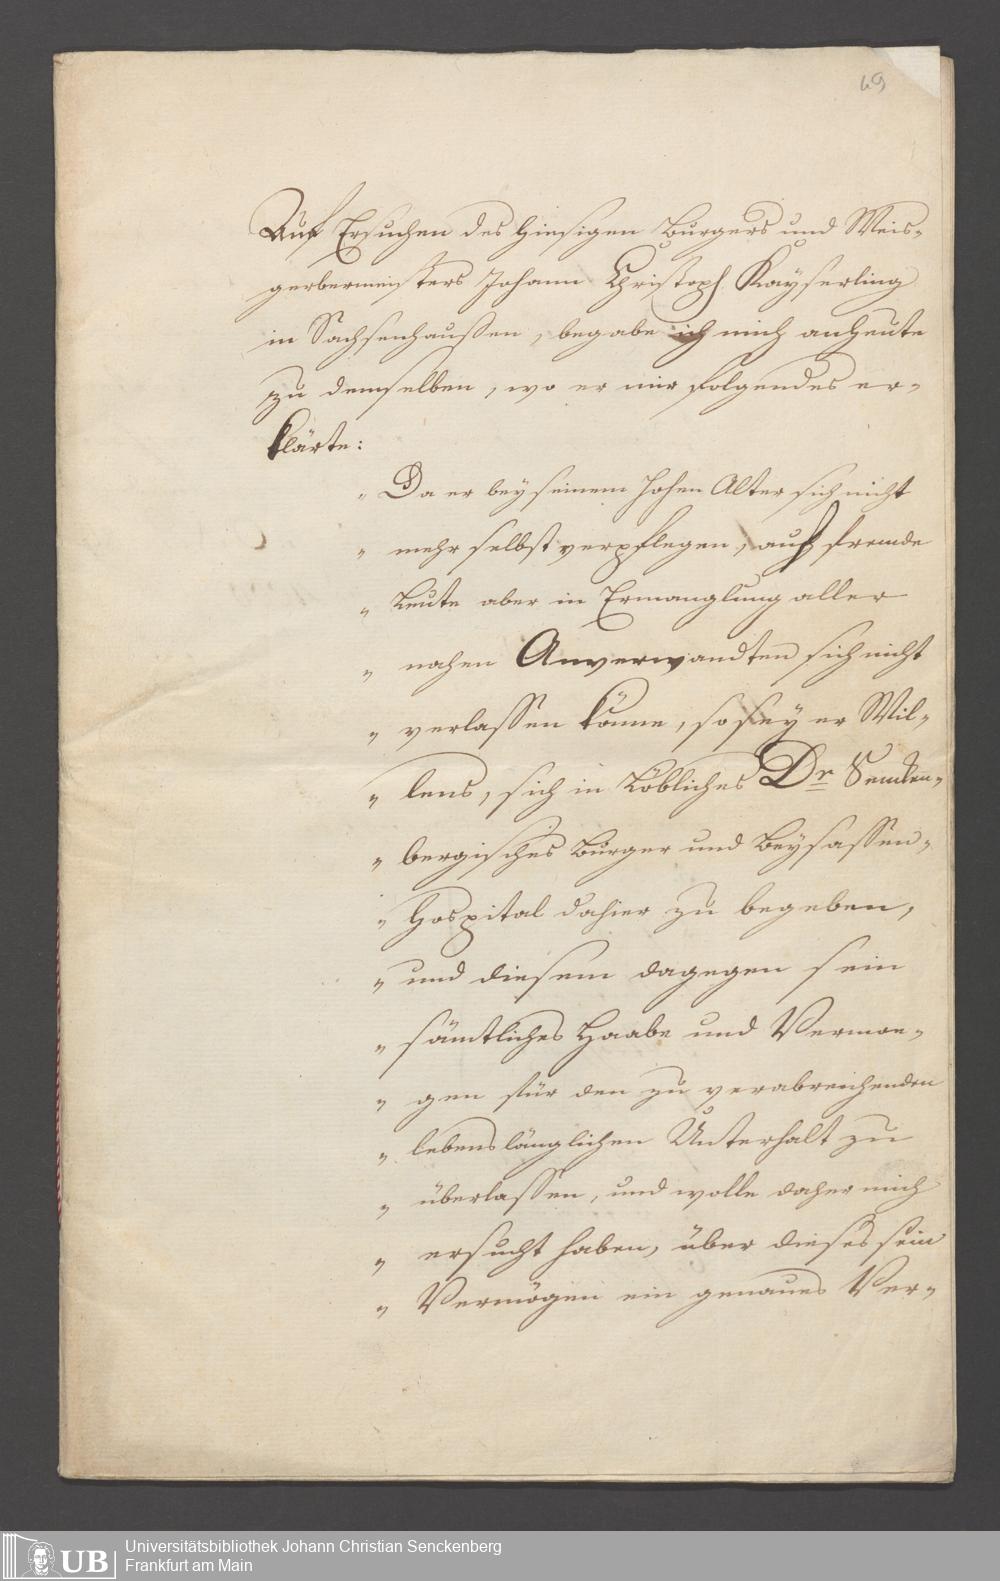 69
Auf Ersuchen des hiesigen Burgers und Weis-
gerbermeisters Johann Christoph Kayserling
in Sachsenhaußen, begabe ich mich anheute
zu demselben, wo er mir folgendes er-
klärte:
" Da er bey seinem hohen Alter sich nicht
" mehr selbst verpflegen, auf fremde
" Leute aber in Ermanglung aller
" nahen Anverwandten sich nicht
" verlassen könne, so sey er Wil-
" lens, sich in Löbliches Dr. Sencken-
" bergisches Burger und Beysassen-
" Hospital dahier zu begeben,
" und diesem dagegen sein
" sämtliches Haabe und Vermoe-
" gen für den zu verabreichenden
" lebenslänglichen Unterhalt zu
" überlassen, und wolle daher mich
" ersucht haben, über dieses sein
" Vermögen ein genaues Ver-
UB
Universitätsbibliothek Johann Christian Senckenberg
Frankfurt am Main